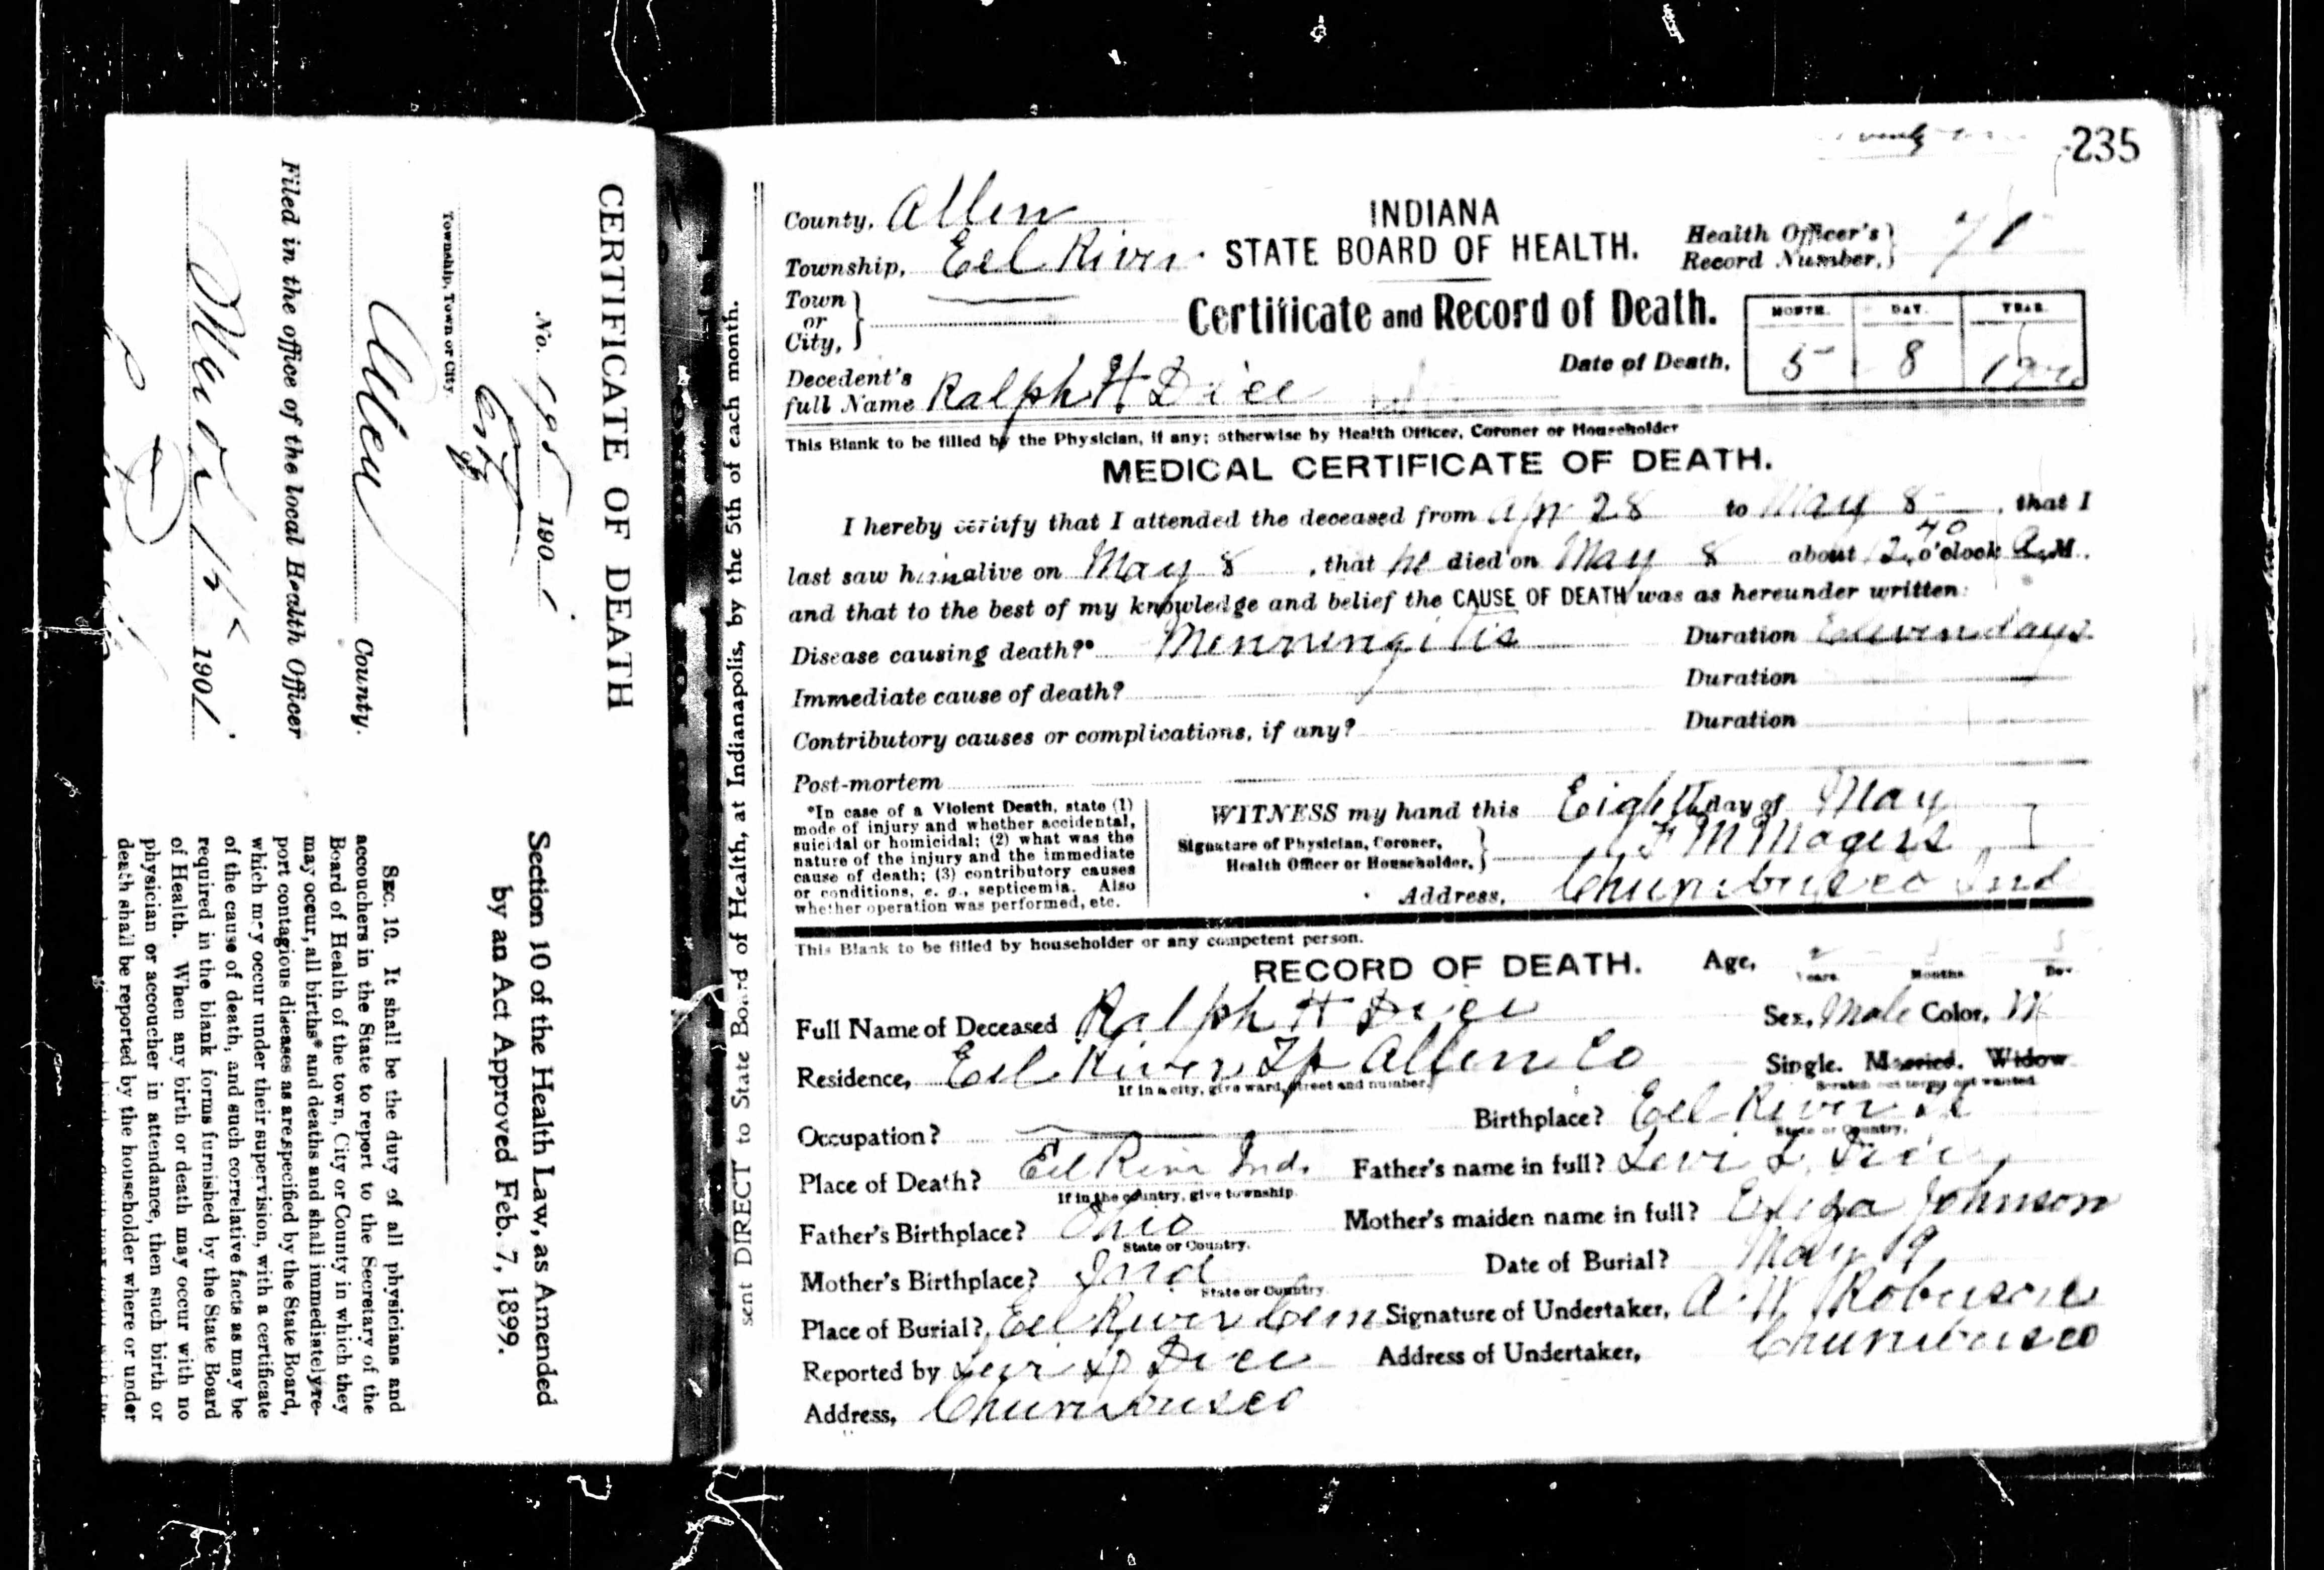 CERTIFICATE OF DEATH
No. 190
Township, Town or City.
Allen County.
Filed in the office of the local Health Officer
190
Section 10 of the Health Law, as Amended
by an Act Approved Feb. 7, 1899.
SEC. 10. It shall be the duty of all physicians and
accouchers in the State to report to the Secretary of the
Board of Health of the town, City or County in which they
may occur, all births* and deaths and shall immediately re-
port contagious diseases as are specified by the State Board,
which may occur under their supervision, with a certificate
of the cause of death, and such correlative facts as may be
required in the blank forms furnished by the State Board
of Health. When any birth or death may occur with no
physician or accoucher in attendance, then such birth or
death shall be reported by the householder where or under
sent DIRECT to State Board of Health, at Indianapolis, by the 5th of each month.
235
County, Allen
INDIANA
Township, Eel River
STATE BOARD OF HEALTH.
Health Officer's
Record Number, 71
Town
or
City,
Certificate and Record of Death.
MONTH. DAY. YEAR.
Date of Death, 5 8
Decedent's
full Name Ralph H Dice
This Blank to be filled by the Physician, if any; otherwise by Health Officer, Coroner or Householder
MEDICAL CERTIFICATE OF DEATH.
I hereby certify that I attended the deceased from Apr 28 to May 8, that I
last saw him alive on May 8, that he died on May 8 about 12 40 o'clock A.M.
and that to the best of my knowledge and belief the CAUSE OF DEATH was as hereunder written:
Disease causing death?* Menningitis Duration Eleven days
Immediate cause of death? Duration
Contributory causes or complications, if any? Duration
Post-mortem
*In case of a Violent Death, state (1)
mode of injury and whether accidental,
suicidal or homicidal; (2) what was the
nature of the injury and the immediate
cause of death; (3) contributory causes
or conditions, e. g., septicemia. Also
whether operation was performed, etc.
WITNESS my hand this Eighth day of May
Signature of Physician, Coroner,
Health Officer or Householder, F M Magers
Address, Churubusco Ind
This Blank to be filled by householder or any competent person.
RECORD OF DEATH. Age,
Years. Months. Day
Full Name of Deceased Ralph H Dice
Sex, Male Color, W
Residence, Eel River Tp Allen Co
If in a city, give ward, street and number.
Single. Married. Widow
Scratch out terms not wanted.
Occupation?
Birthplace? Eel River Tp
State or Country.
Place of Death? Eel River Ind.
If in the country, give township.
Father's name in full? Levi L. Dice
Father's Birthplace? Ohio
State or Country.
Mother's maiden name in full? Eliza Johnson
Mother's Birthplace? Ind
State or Country.
Date of Burial? May 19
Place of Burial? Eel River Cem
Signature of Undertaker, A. W. Robinson
Reported by Levi L Dice
Address of Undertaker, Churubusco
Address, Churubusco